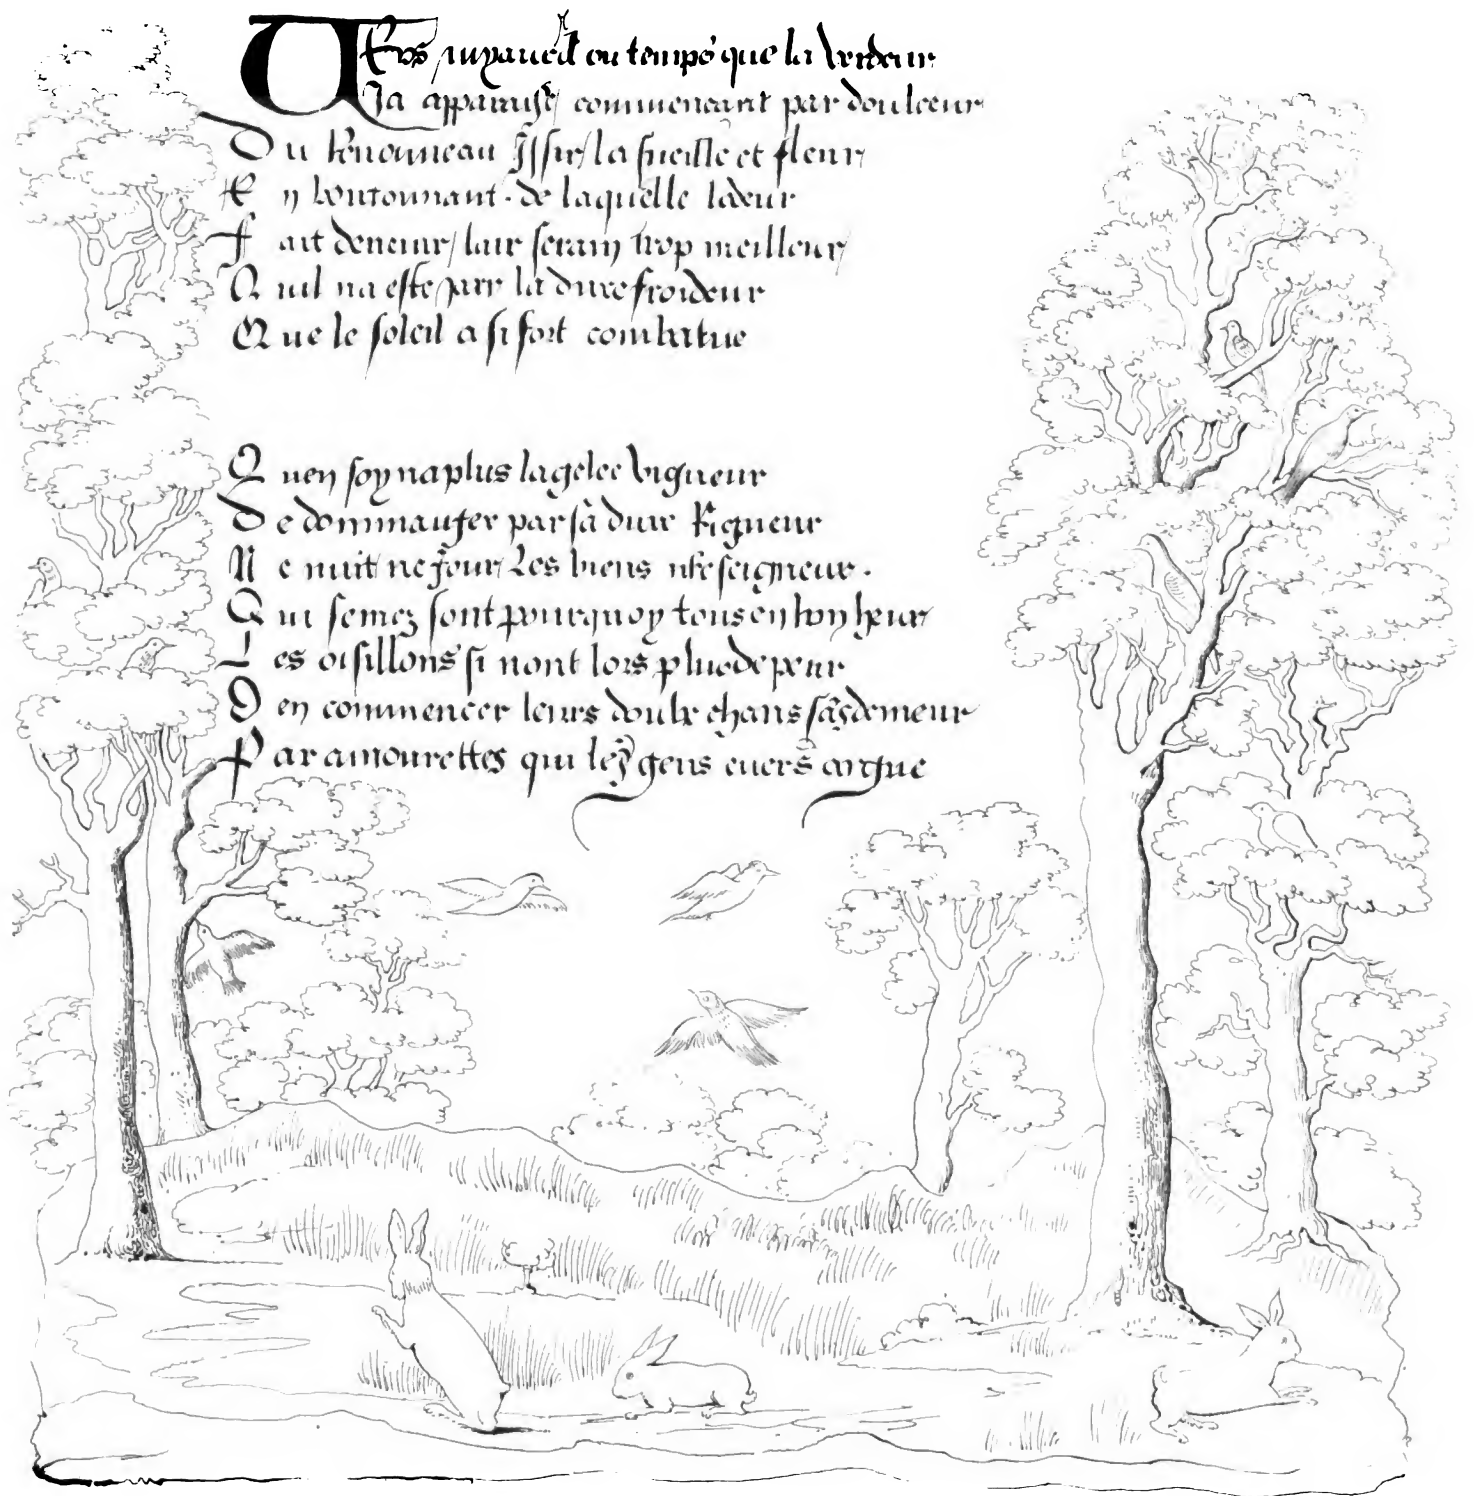 Vers my avril ou temps que la verdeur
Ja apparrust / commencant par doulceur
Du renouveau Issir / la fueille et fleur /
En boutonnant . de laquelle lodeur
Fait devenir / lair serain trop meilleur /
Quil na este / par la dure froideur
Que le soleil a si fort combatue
Quen soy na plus la gelee vigueur
De dommauger par sa dure Rigueur
Ne nuit ne jour / Les biens nre seigneur .
Qui semez sont pourquoy tous en bon heur /
Les oisillons si nont lors plus de peur
Den commencer leurs doulx chans sãs demeur
Par amourettes qui les gens envers argue